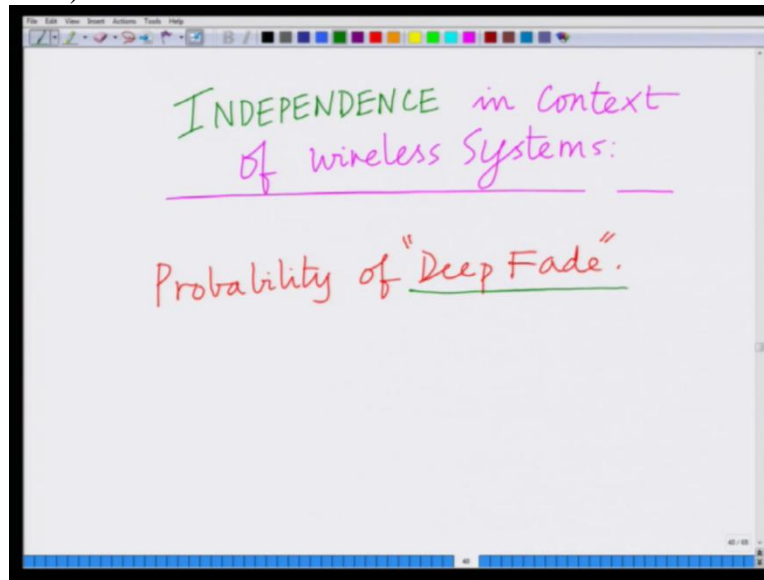 File Edit View Insert Actions Tools Help
INDEPENDENCE in Context
of Wireless Systems:
Probability of "Deep Fade".
40